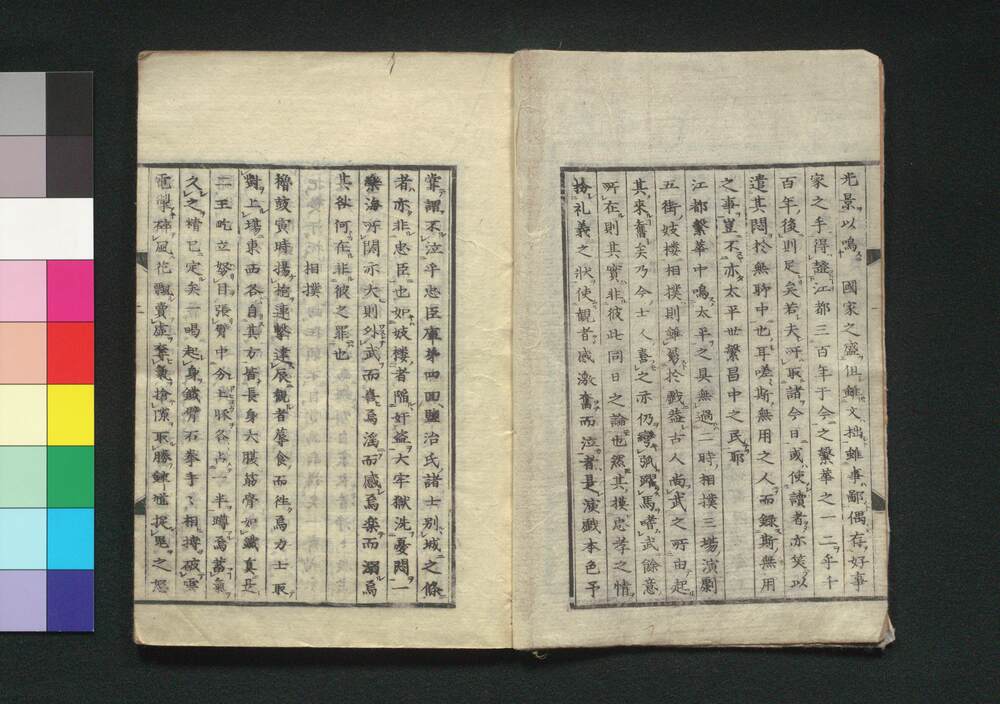 光景以鳴 國家之盛但雖文拙雖事鄙偶存好事
家之手得證江都三百年于今之繁華之一二乎十
百年後則足矣若夫所取諸今日或使讀者亦笑以
遣其悶於無聊中也耳嗟斯無用之人而錄斯無用
之事豈不亦太平世繁昌中之民耶
江都繁華中鳴太平之具無過二時相撲三場演劇
五街妓樓相撲則雖易於戲蓋古人尚武之所由起
其來舊矣乃今士人喜之亦仍彎弧躍馬嗜武餘意
所在則其實非彼此同日之論也然其摸忠孝之情
拾礼義之状使観者感激奮而泣者是演戲本色予
嘗謂不泣乎忠臣庫第四回鹽冶氏諸士別城之條
者亦非忠臣也如妓樓者陷奸盗大牢獄洗憂悶一
樂海所関亦大則外武而喜焉淫而感焉楽而溺焉
其欲何在非彼之罪也
相撲
櫓鼓寅時揚枹連撃達辰観者蓐食而徃焉力士取
對上場東西各自其方皆長身大腹筋骨如鐵真是
二王屹立努目張臂中分土豚各占一半蹲焉蓄氣
久之精已定矣一喝起身鐵臂石拳手手相搏破雲
電掣砕風花飄賣虚奪氣搶隙取勝鍾馗捉鬼之怒